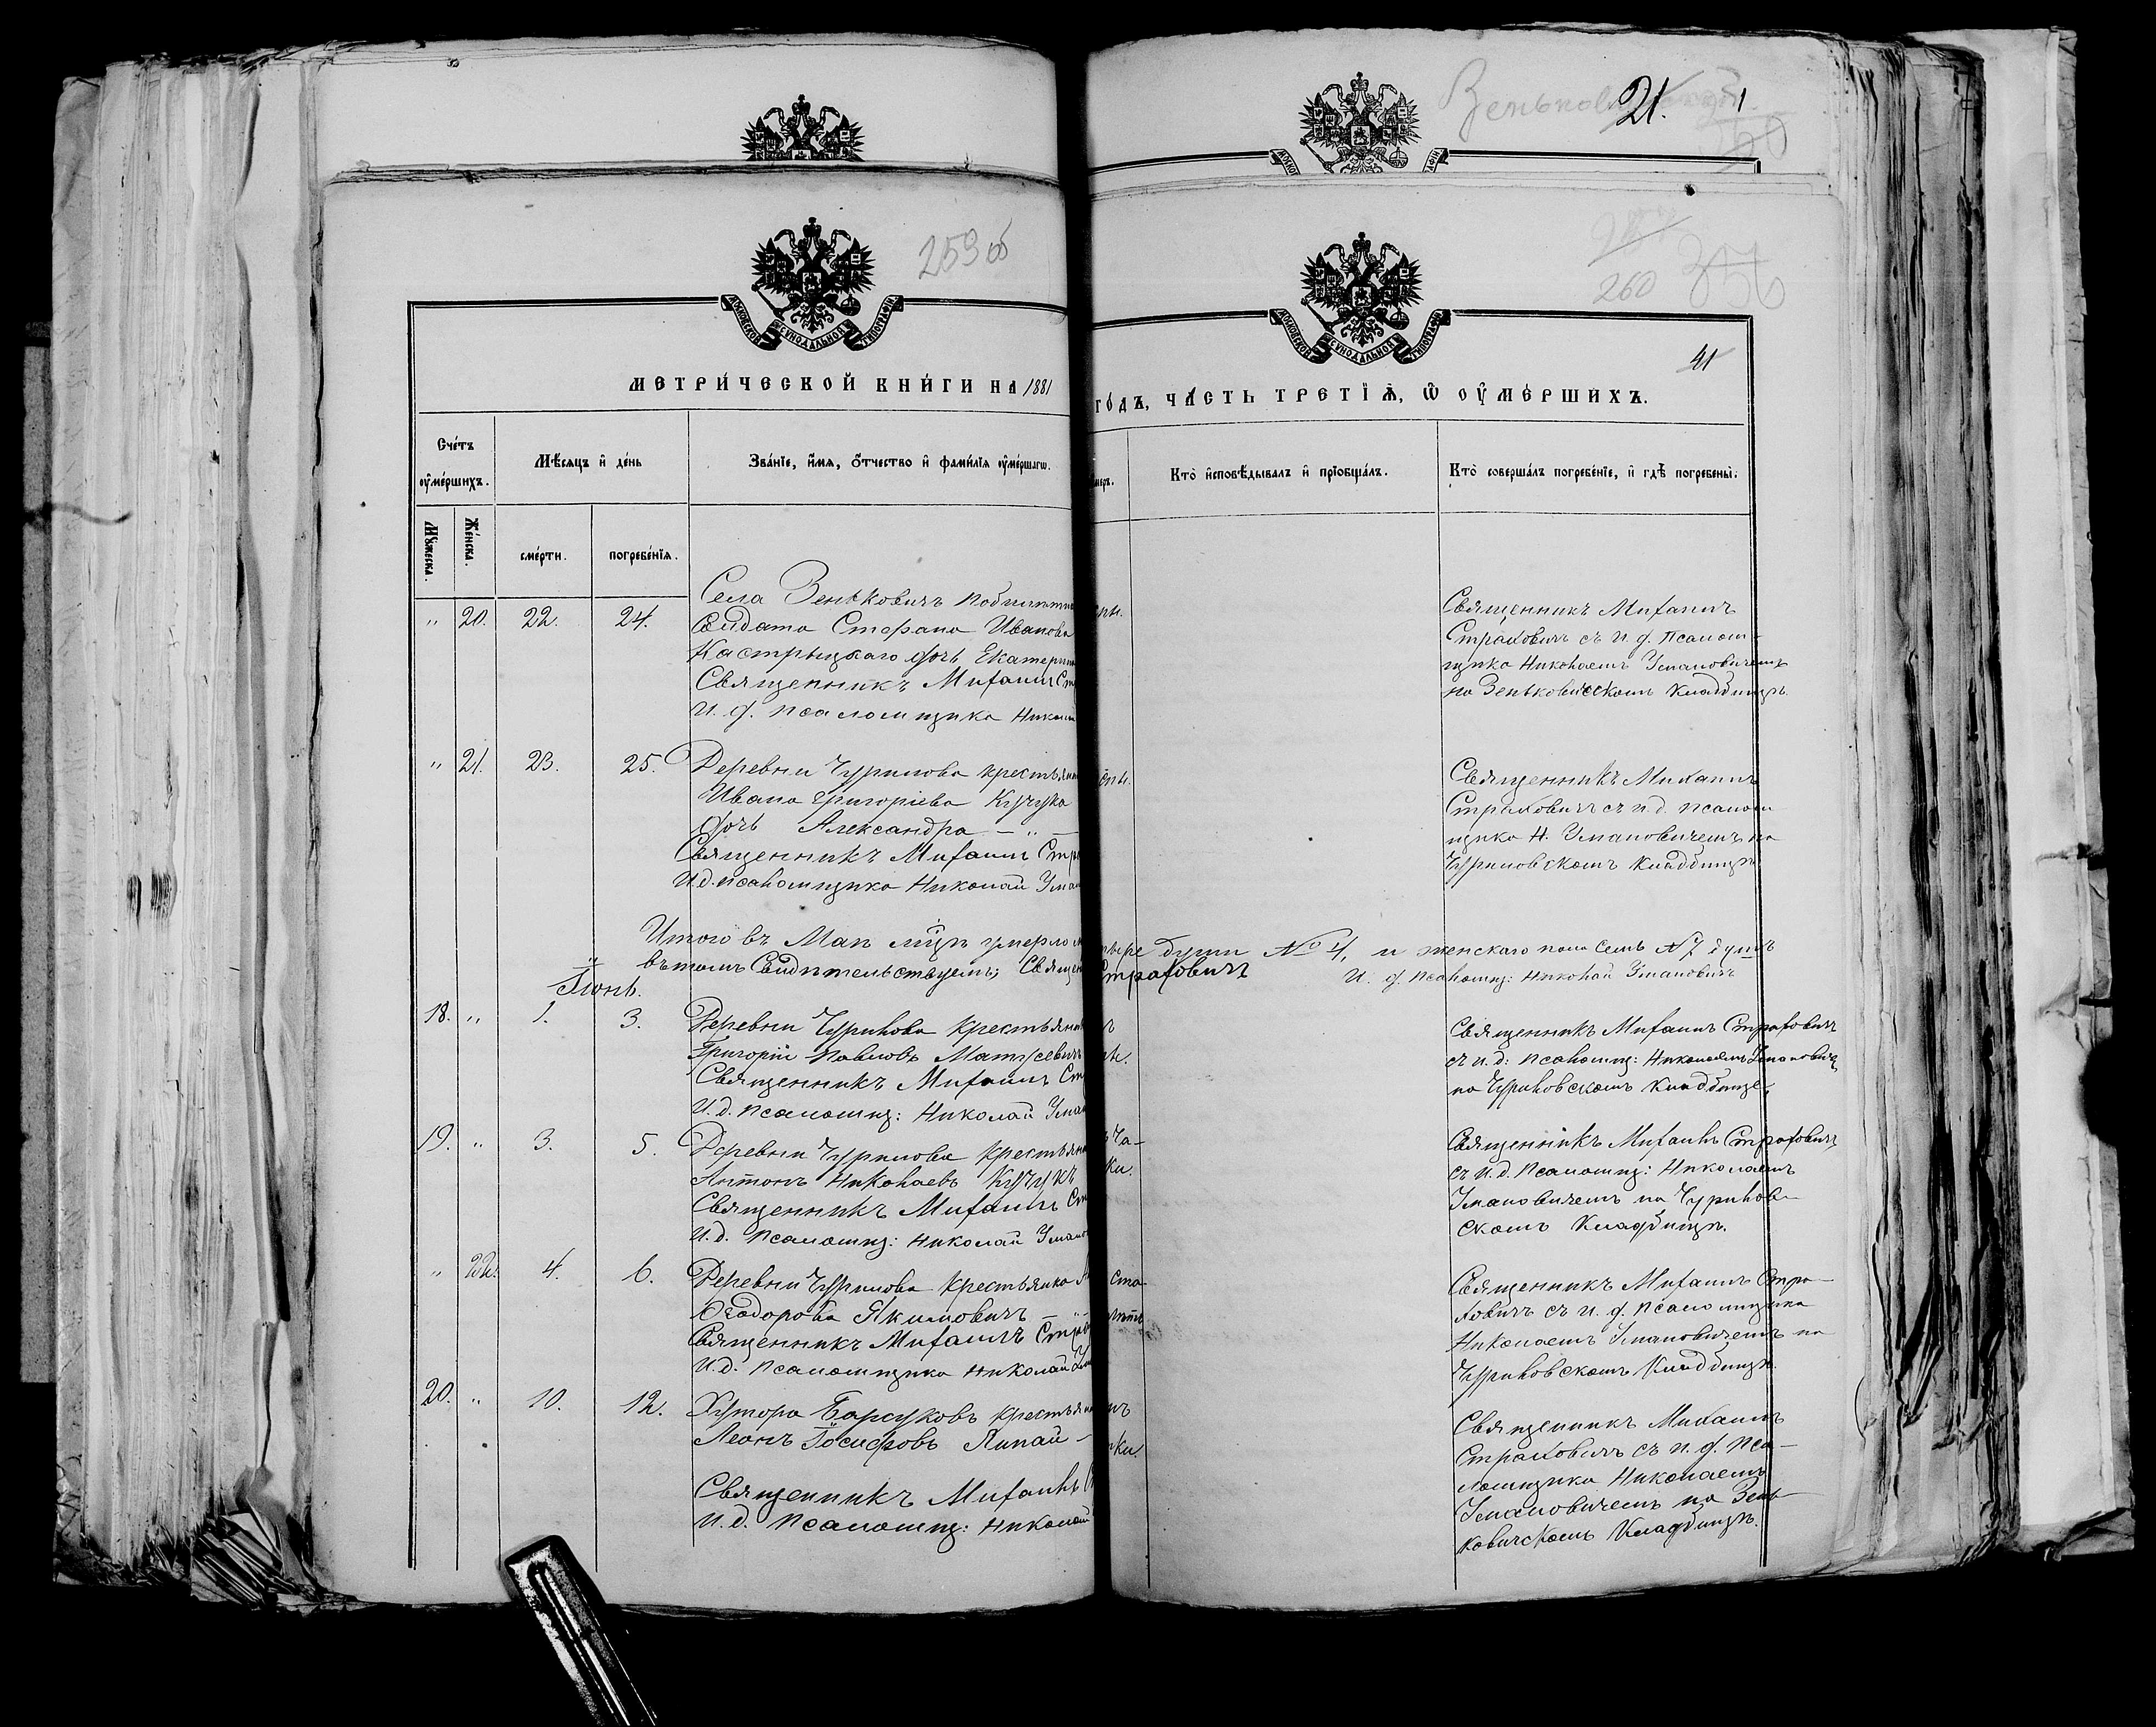 Зеньков
21.
1
МОСКОВСКОЙ СѴНОДАЛЬНОЙ ТИПОГРАФІИ
МОСКОВСКОЙ СѴНОДАЛЬНОЙ ТИПОГРАФІИ
259 об
260
41
МЕТРИЧЕСКОЙ КНИГИ НА 1881
ГОДЪ, ЧАСТЬ ТРЕТІѦ, Ѡ ОУМЕРШИХЪ.
Счетъ оумершихъ.
Мѣсяцъ и день
Званіе, имя, отчество и фамилія оумершагѡ.
меръ.
Кто исповѣдывалъ и пріобщалъ.
Кто совершалъ погребеніе, и гдѣ погребены.
Мужеска.
Женска.
смерти.
погребенія.
" 20. 22. 24.
Села Зеньковичъ
Солдата Стефана Иванова
Кастрыцкаго дочь Екатерина
Священникъ Михаилъ
И. д. псаломщика
Священникъ Михаилъ
Страховичъ съ и. д. псалом-
щика Николаемъ Умановичемъ
на Зеньковичскомъ кладбищѣ.
" 21. 23. 25.
Деревни Чурилова
Ивана Григоріева Кучука
дочь Александра — " —
Священникъ Михаилъ
И. д. псаломщика Николай
Священникъ Михаилъ
Страховичъ съ и. д. псалом
щика Н. Умановичемъ на
Чуриловскомъ кладбищѣ
Итого въ Маѣ мцѣ умерло
тыре души № 4, и женскаго пола семь № 7 душъ
въ томъ свидѣтельствуемъ: Свящ
Страховичъ
И. д. псаломщ: Николай Умановичъ
Іюнь.
18. " 1. 3.
Деревни Чурилова крестьянинъ
Григорій Павловъ Матусевичъ
Священникъ Михаилъ
И. д. псаломщ: Николай
Священникъ Михаилъ Страховичъ
съ и. д: псаломщ: Николаемъ Умановичемъ
на Чуриловскомъ кладбище.
19. " 3. 5.
Деревни Чурилова
Антонъ Николаевъ Кучукъ
Священникъ Михаилъ
И. д. псаломщ: Николай
Ча-
ки.
Священникъ Михаилъ Страховичъ
съ и. д. псаломщ: Николаемъ
Умановичемъ на Чурилов-
скомъ кладбищѣ.
" 22. 4. 6.
Деревни Чурилова крестьянка
Ѳеодорова Якимовичъ — " —
Священникъ Михаилъ
И. д. псаломщика Николай
ста-
Священникъ Михаилъ Стра-
ховичъ съ и. д. псаломщика
Николаемъ Умановичемъ на
Чуриловскомъ кладбищѣ.
20. " 10. 12.
Хутора Барсуковъ
Леонъ Іосифовъ Липай —
ки.
Священникъ Михаилъ
И. д. псаломщ: Николай
Священникъ Михаилъ
Страховичъ съ и. д. пса-
ломщика Николаемъ
Умановичемъ на Зень-
ковичскомъ кладбищѣ.